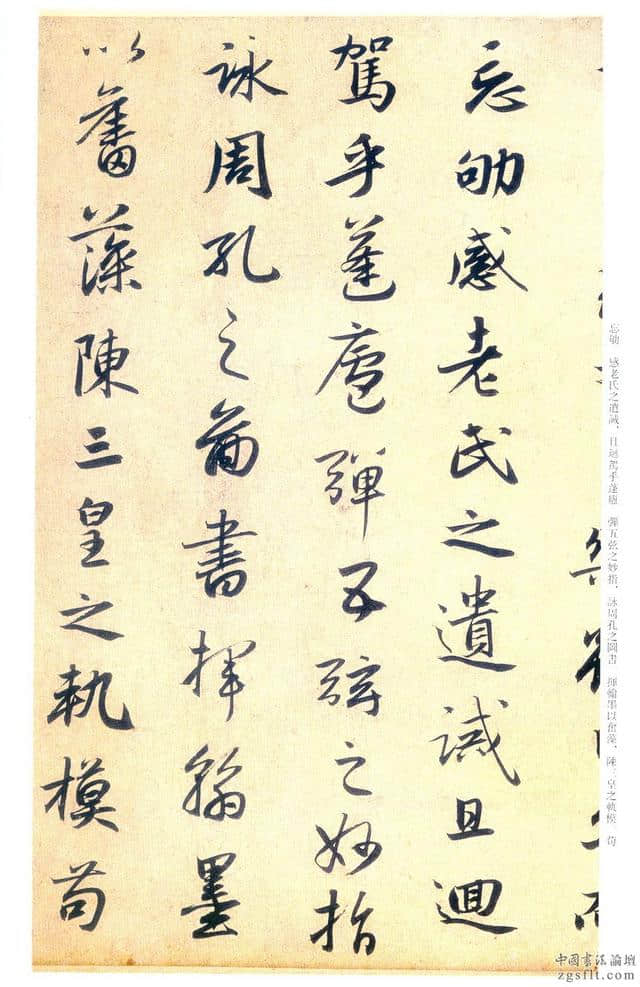 忘劬感老氏之遺誡且迴
駕乎蓬廬彈五弦之妙指
詠周孔之圖書揮翰墨
以奮藻陳三皇之軌模苟
忘劬 感老氏之遺誡,且迴駕乎蓬廬 彈五弦之妙指,詠周孔之圖書 揮翰墨以奮藻,陳三皇之軌模 苟
中國書法論壇
zgsflt.com